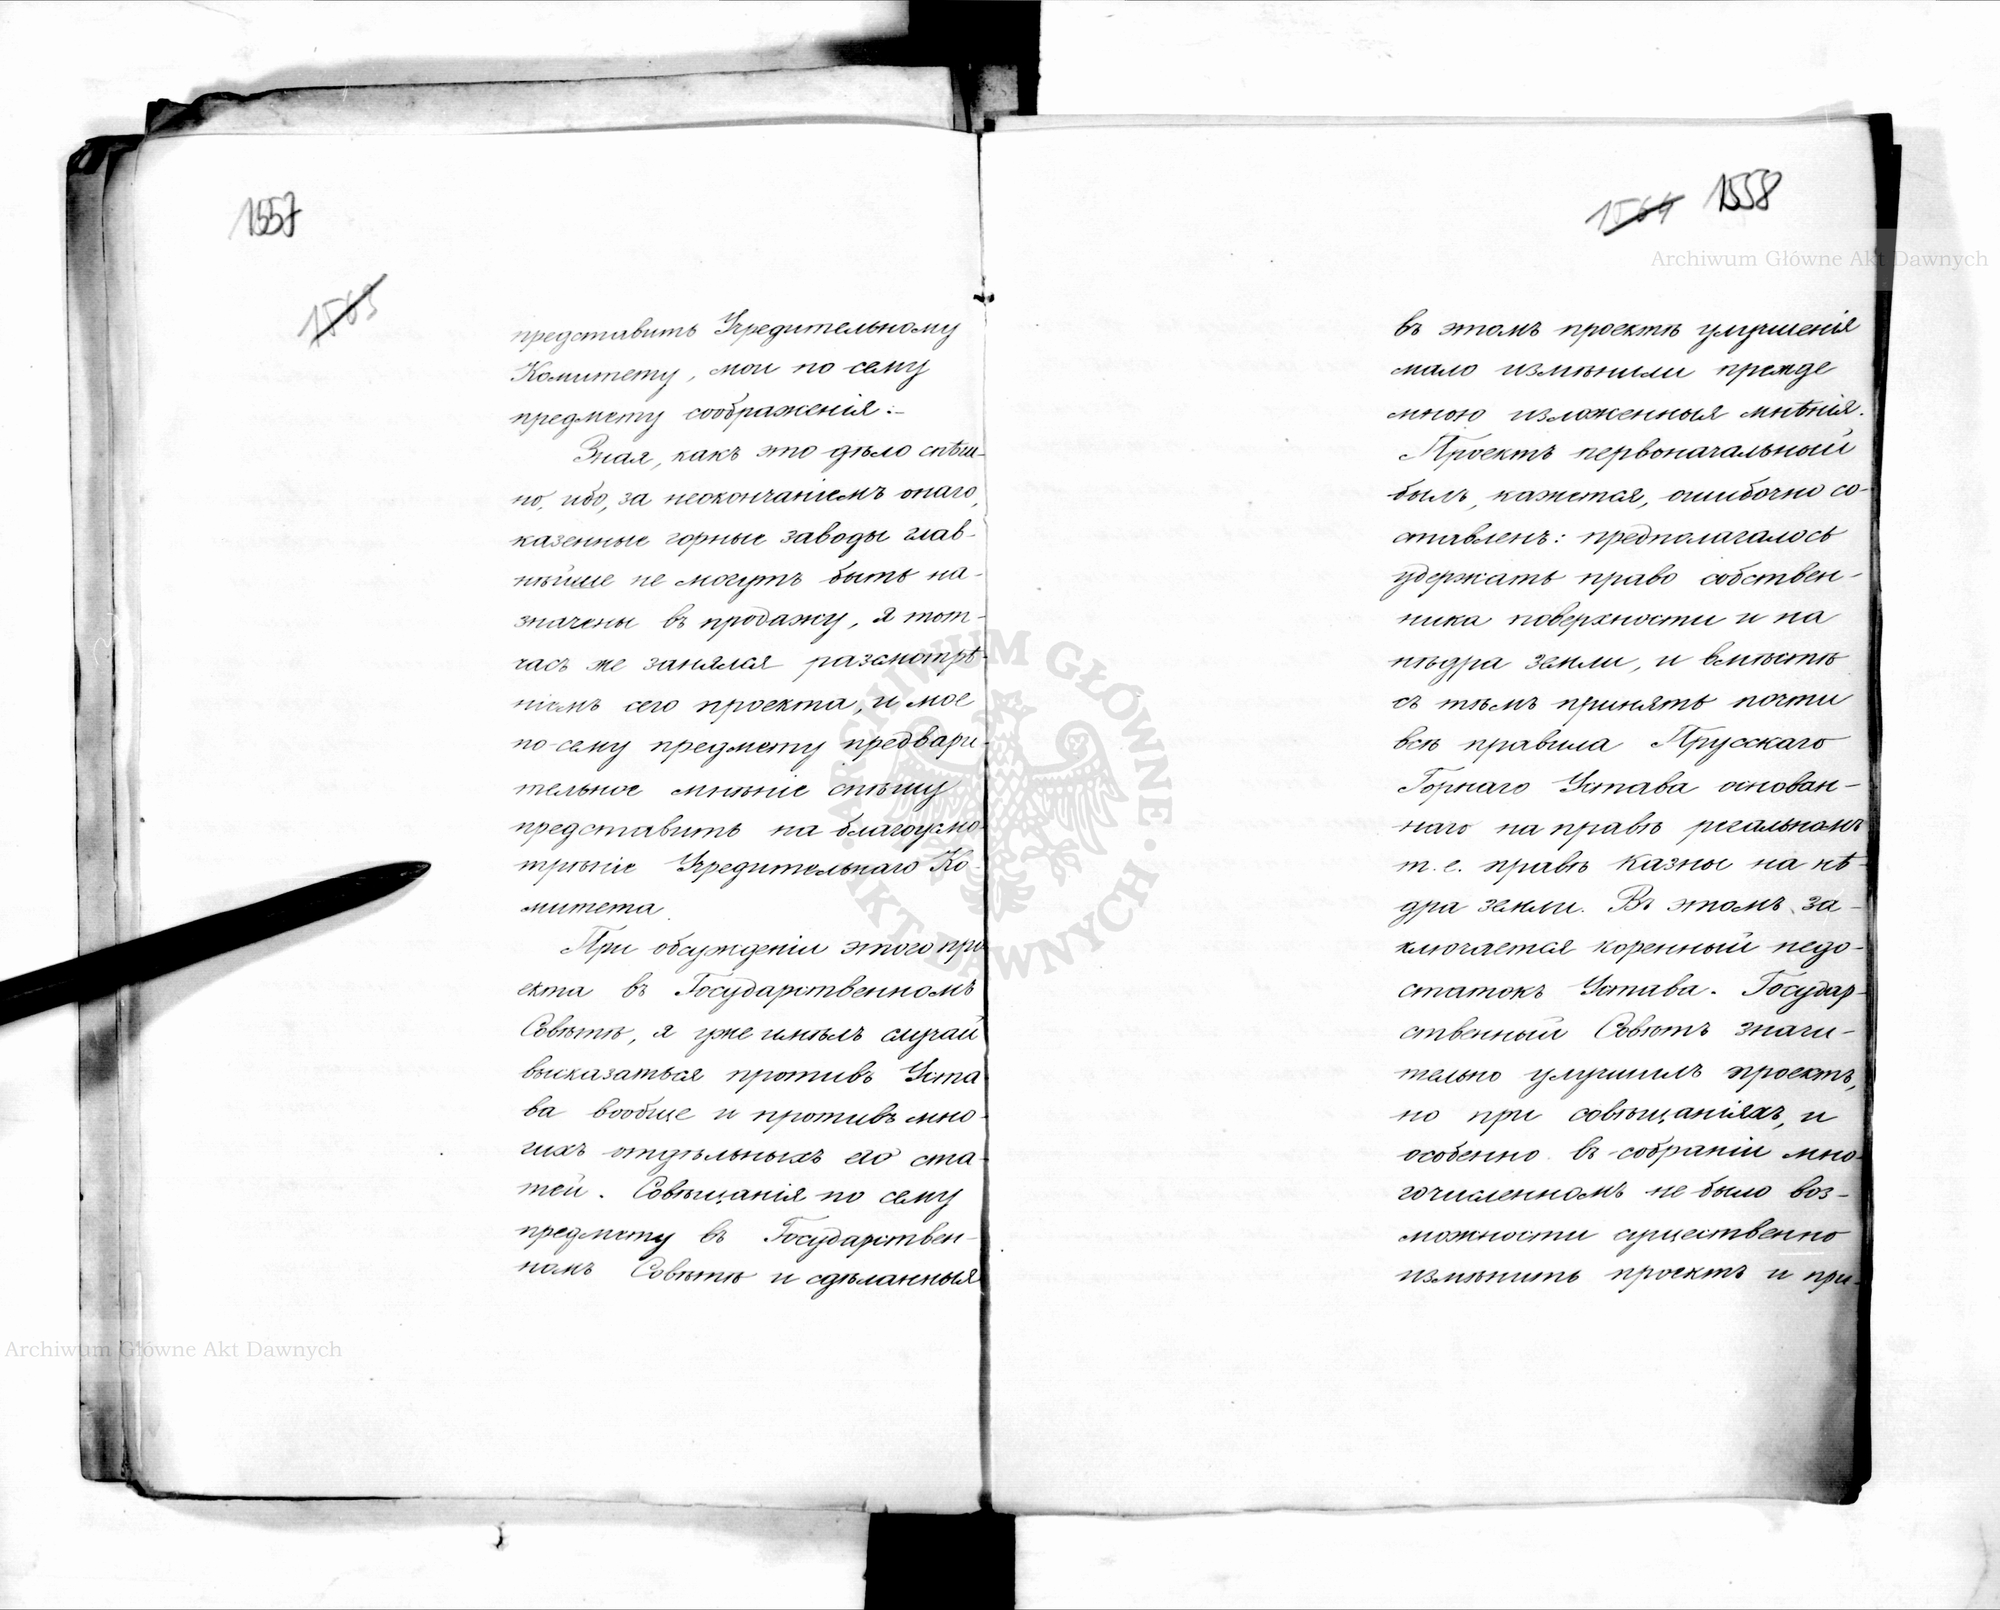 1557
1563
представить Учредительному
Комитету, мои по сему
предмету соображенія:–
Зная, какъ это дѣло спѣш-
но, ибо, за неокончаніемъ онаго,
казенные горные заводы глав-
нѣйше не могутъ быть на-
значены въ продажу, я тот-
часъ же занялся разсмотрѣ-
ніемъ сего проекта, и мое
по сему предмету предвари-
тельное мнѣніе спѣшу
представить на благоусмо-
трѣніе Учредительнаго Ко-
митета.
При обсужденіи этого про-
екта въ Государственномъ
Совѣтѣ, я уже имѣлъ случай
высказаться противъ Уста-
ва вообще и противъ мно-
гихъ отдѣльныхъ его ста-
тей. Совѣщанія по сему
предмету въ Государствен-
номъ Совѣтѣ и сдѣланныя
1564 1558
въ этомъ проектѣ улучшенія
мало измѣнили прежде
мною изложенныя мнѣнія.
Проектъ первоначальный
былъ, кажется, ошибочно со-
ставленъ: предполагалось
удержать право собствен-
ника поверхности и на
нѣдра земли, и вмѣстѣ
съ тѣмъ принять почти
всѣ правила Прусскаго
Горнаго Устава основан-
наго на правѣ регальномъ
т. е. правѣ казны на нѣ-
дра земли. Въ этомъ за-
ключается коренный недо-
статокъ Устава. Государ-
ственный Совѣтъ значи-
тельно улучшилъ проектъ,
но при совѣщаніяхъ, и
особенно въ собраніи мно-
гочисленномъ не было воз-
можности существенно
измѣнить проектъ и при-
Archiwum Główne Akt Dawnych
ARCHIWUM GŁÓWNE AKT DAWNYCH
Archiwum Główne Akt Dawnych